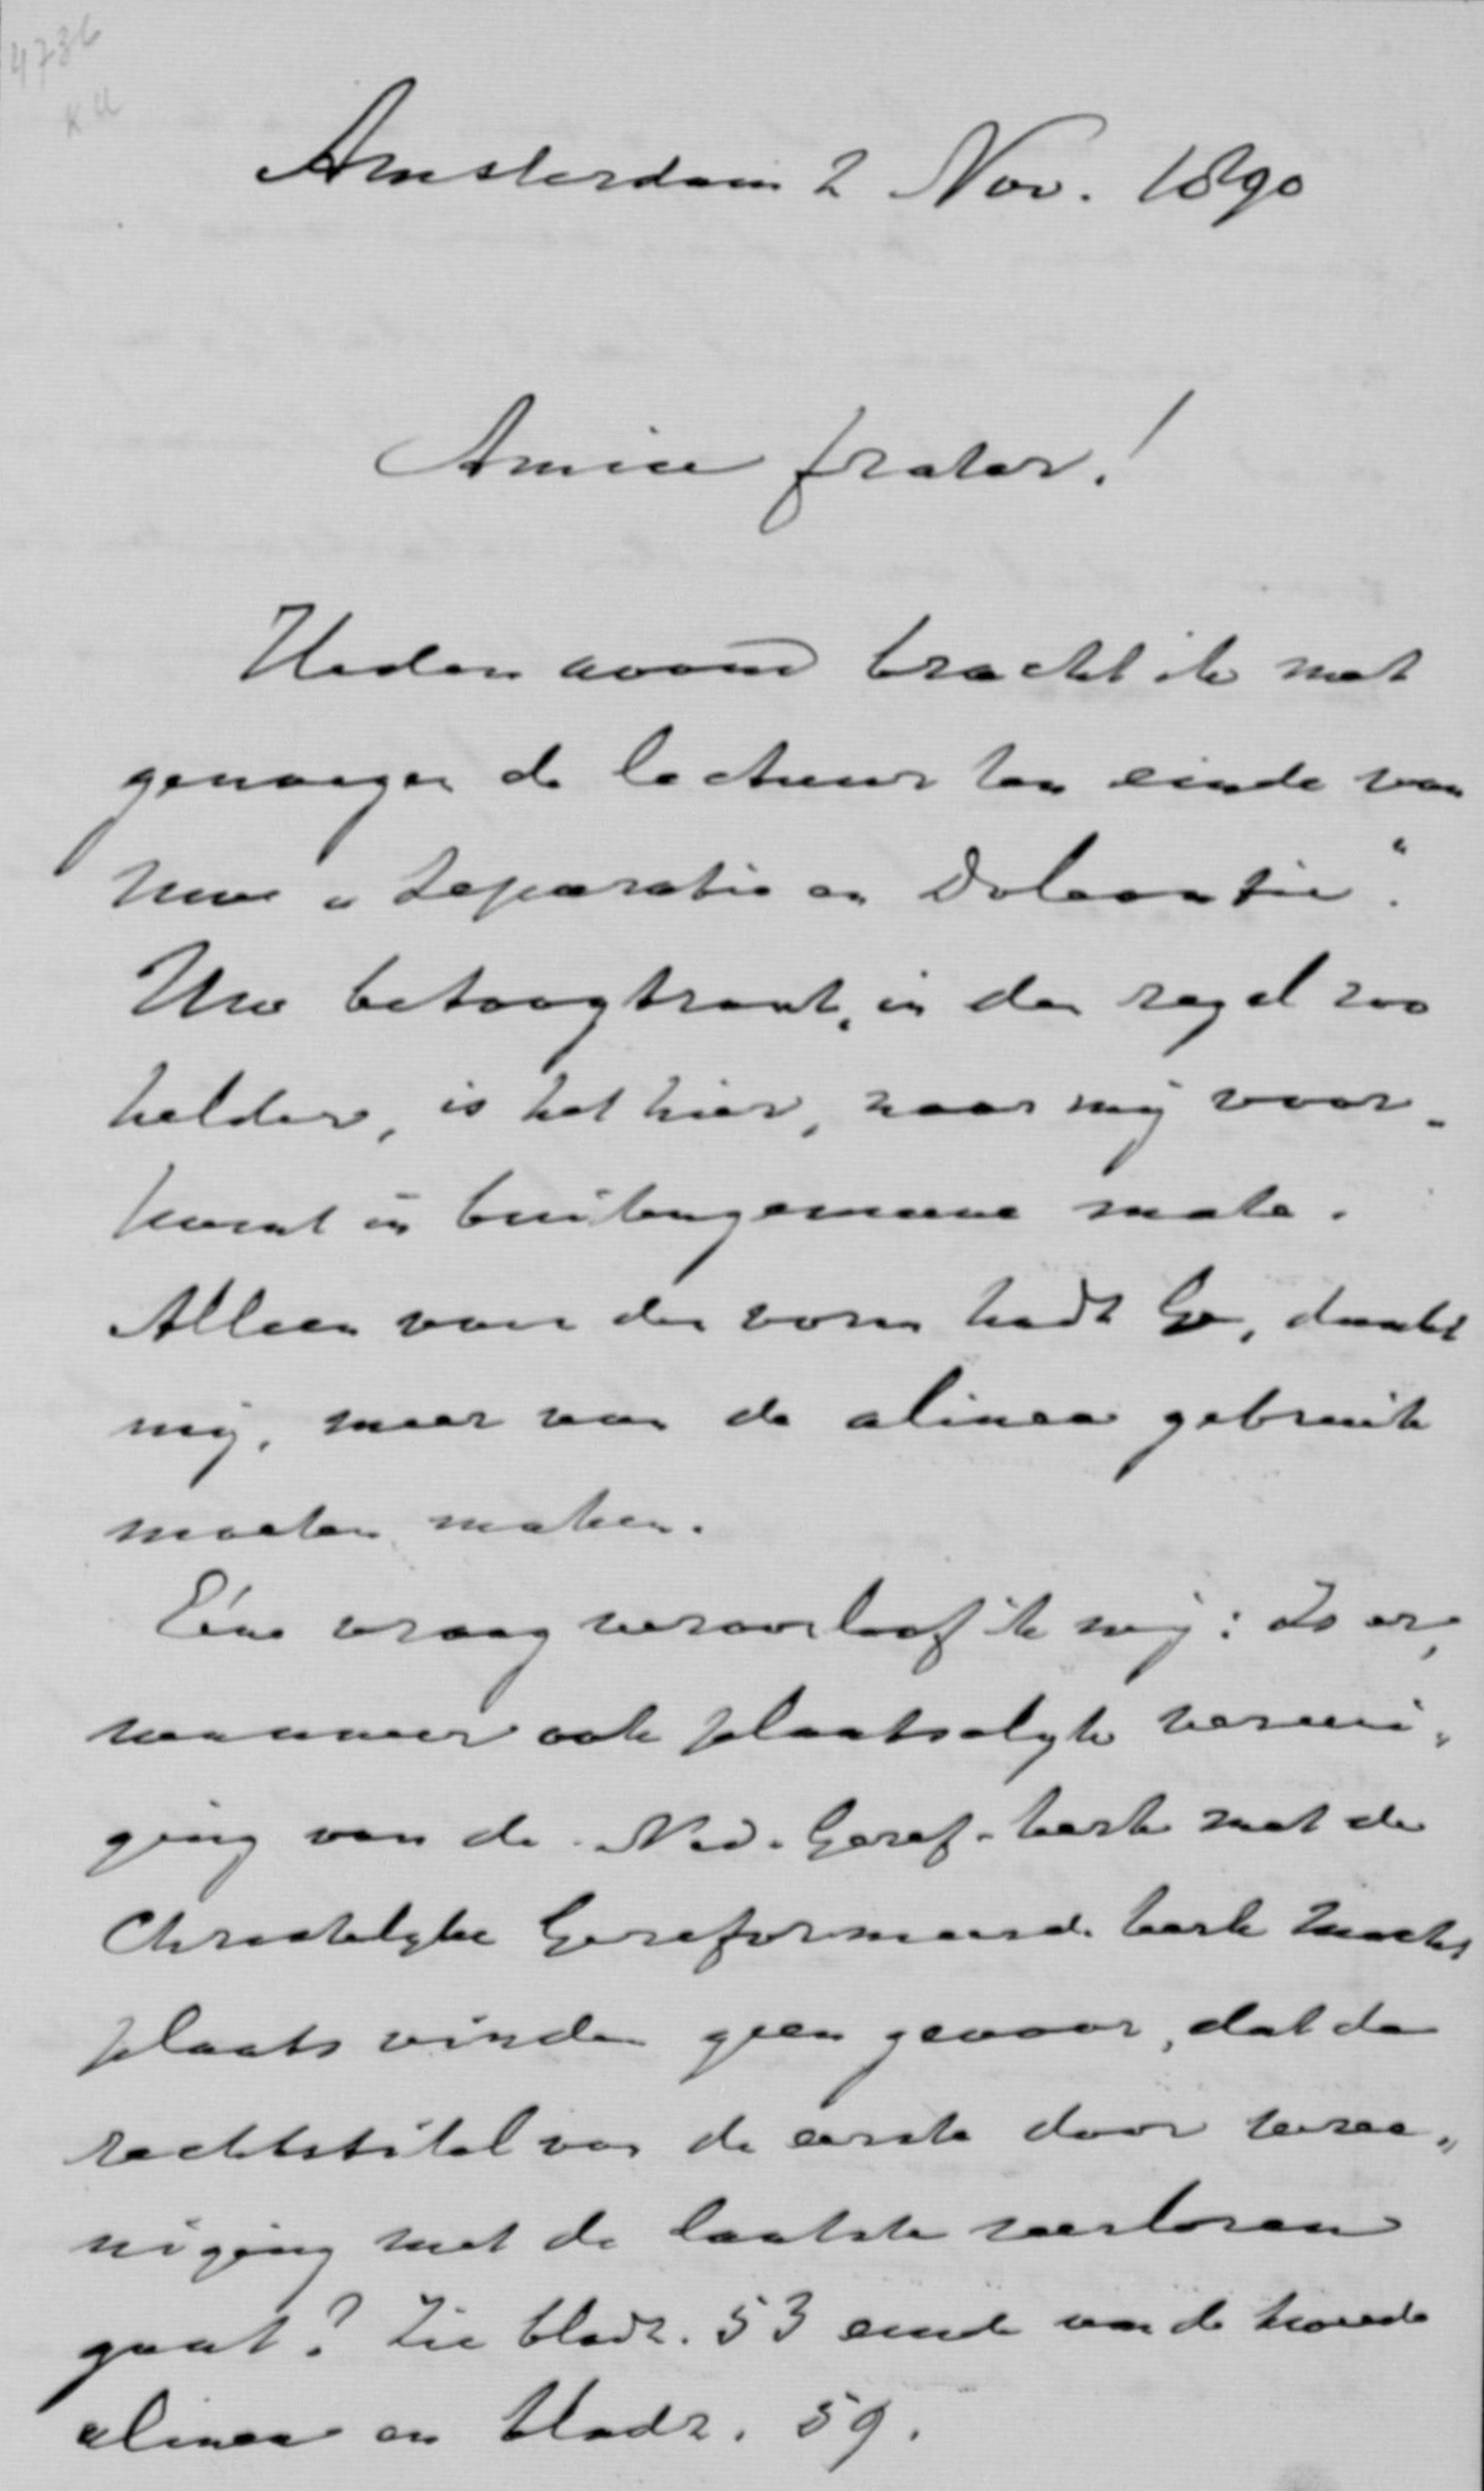 4736
KU
Amsterdam 2 Nov. 1890
Amice frater!
Heden avond bracht ik met
genoegen de lectuur ten einde van
Uwe „Separatie en Doleantie".
Uw betoogtrant, in den regel zoo
helder, is het hier, naar mij voor-
komt in buitengemeene mate.
Alleen voor den vorm hadt Ge, dunkt
mij, meer van de alinea gebruik
moeten maken.
Eéne vraag veroorloof ik mij: Is er,
wanneer ook plaatselyke vereeni-
ging van de Ned. Geref. kerk met de
Christelyke Gereformeerde kerk mocht
plaats vinden geen gevaar, dat de
rechtstitel van de eerste door veree-
niging met de laatste verloren
gaat? Zie bladz. 53 einde van de tweede
alinea en bladz. 59.